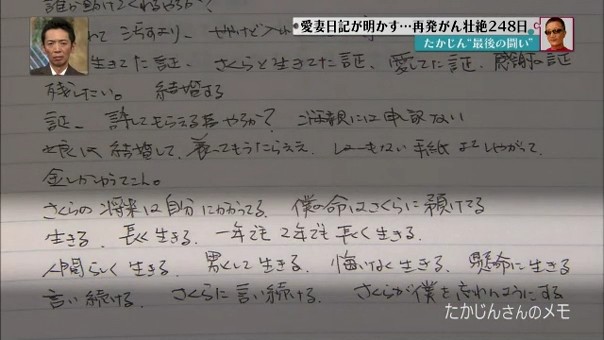 愛妻日記が明かす…再発がん壮絶248日
たかじん“最後の闘い”
生きてた証、さくらと生きてた証、愛してた証、感謝の証
残したい。 結婚する
証、許してもらえる
ご両親には申訳ない
結婚して、
しょーもない手紙よこしやがって、
さくらの将来は自分にかかってる 僕の命はさくらに預けてる
生きる、長く生きる、一年でも2年でも長く生きる、
人間らしく生きる、男として生きる、悔いなく生きる、懸命に生きる
言い続ける、さくらに言い続ける、さくらが僕を忘れんようにする
たかじんさんのメモ